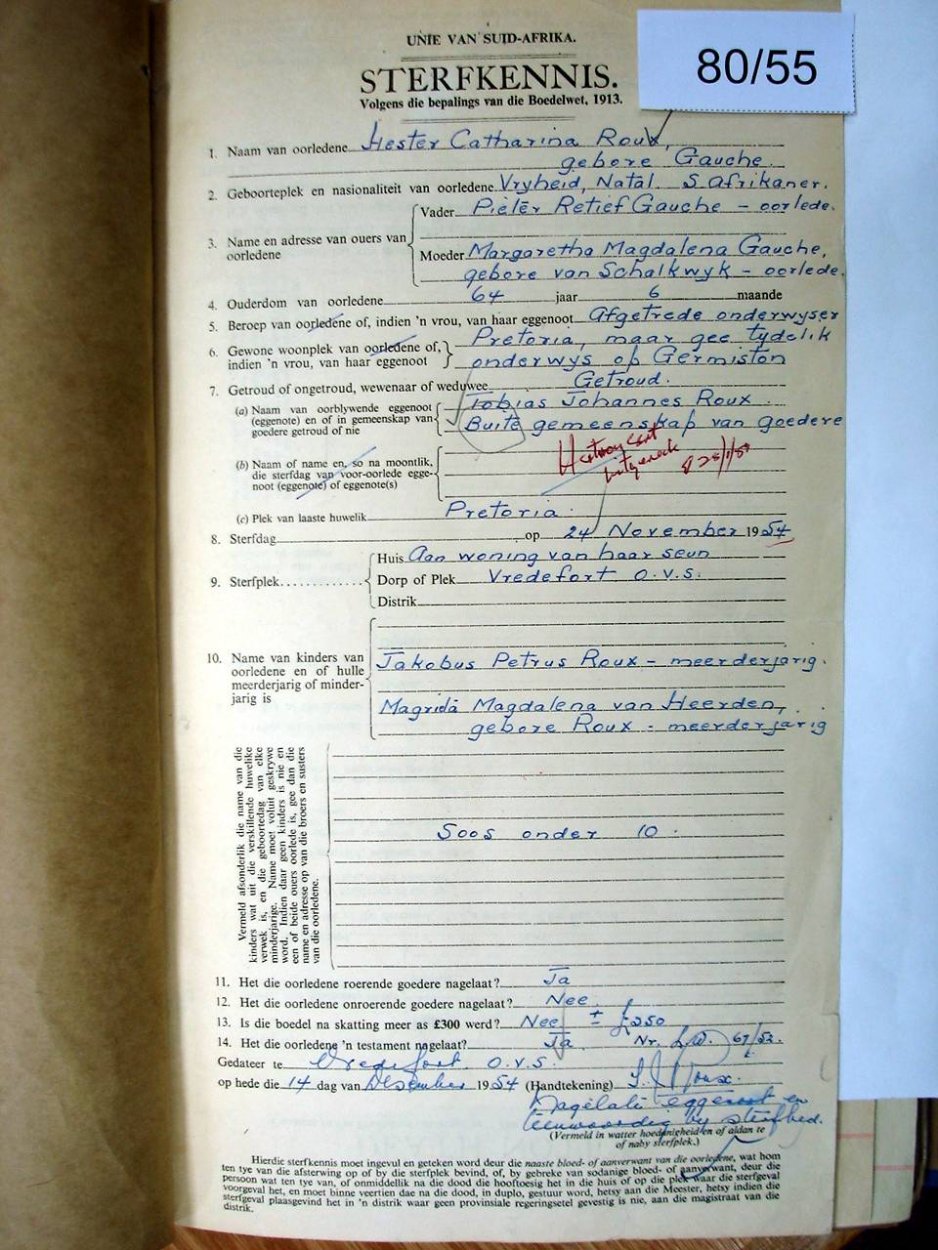 80/55
UNIE VAN SUID-AFRIKA.
STERFKENNIS.
Volgens die bepalings van die Boedelwet, 1913.
1. Naam van oorledene Hester Catharina Roux,
gebore Gauche.
2. Geboorteplek en nasionaliteit van oorledene Vryheid, Natal. S. Afrikaner.
3. Name en adresse van ouers van oorledene
Vader Pieter Retief Gauche - oorlede.
Moeder Margaretha Magdalena Gauche,
gebore van Schalkwyk - oorlede.
4. Ouderdom van oorledene 64 jaar 6 maande
5. Beroep van oorledene of, indien 'n vrou, van haar eggenoot Afgetrede onderwyser
6. Gewone woonplek van oorledene of, indien 'n vrou, van haar eggenoot
Pretoria, maar gee tydelik
onderwys op Germiston
7. Getroud of ongetroud, wewenaar of weduwee Getroud.
(a) Naam van oorblywende eggenoot
(eggenote) en of in gemeenskap van
goedere getroud of nie
Tobias Johannes Roux.
Buite gemeenskap van goedere
(b) Naam of name en, so na moontlik,
die sterfdag van voor-oorlede egge-
noot (eggenote) of eggenote(s)
(c) Plek van laaste huwelik Pretoria.
8. Sterfdag op 24 November 1954
9. Sterfplek
Huis Aan woning van haar seun
Dorp of Plek Vredefort O.V.S.
Distrik
10. Name van kinders van
oorledene en of hulle
meerderjarig of minder-
jarig is
Jakobus Petrus Roux - meerderjarig.
Magrida Magdalena van Heerden,
gebore Roux - meerderjarig
Vermeld afsonderlik die name van die
kinders wat uit die verskillende huwelike
verwek is, en die geboortedag van elke
minderjarige. Name moet voluit geskrywe
word. Indien daar geen kinders is nie en
een of beide ouers oorlede is, gee dan die
name en adresse op van die broers en susters
van die oorledene.
Soos onder 10.
11. Het die oorledene roerende goedere nagelaat? Ja
12. Het die oorledene onroerende goedere nagelaat? Nee
13. Is die boedel na skatting meer as £300 werd? Nee ± £250
14. Het die oorledene 'n testament nagelaat? Ja Nr.
Gedateer te Vredefort O.V.S.
op hede die 14 dag van Desember 1954 (Handtekening)
Nagelate eggenoot en
teenwoordig by sterfbed.
(Vermeld in watter hoedanigheid en of aldan te
of naby sterfplek.)
Hierdie sterfkennis moet ingevul en geteken word deur die naaste bloed- of aanverwant van die oorledene, wat hom
ten tye van die afsterwing op of by die sterfplek bevind, of, by gebreke van sodanige bloed- of aanverwant, deur die
persoon wat ten tye van, of onmiddellik na die dood die hooftoesig het in die huis of op die plek waar die sterfgeval
voorgeval het, en moet binne veertien dae na die dood, in duplo, gestuur word, hetsy aan die Meester, hetsy indien die
sterfgeval plaasgevind het in 'n distrik waar geen provinsiale regeringsetel gevestig is nie, aan die magistraat van die
distrik.